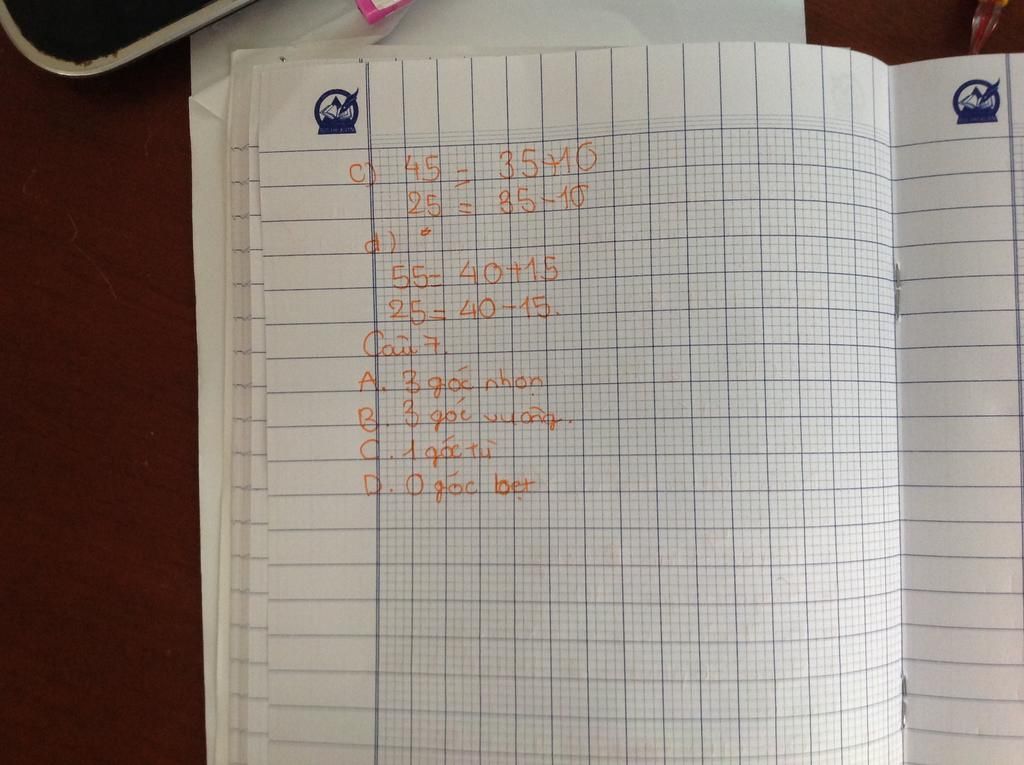 c) 45 = 35+10
25 = 35-10
d)
55= 40+15
25=40-15.
Câu 7.
A. 3 góc nhọn
B. 3 góc vuông.
C. 1 góc tù
D. 0 góc bẹt